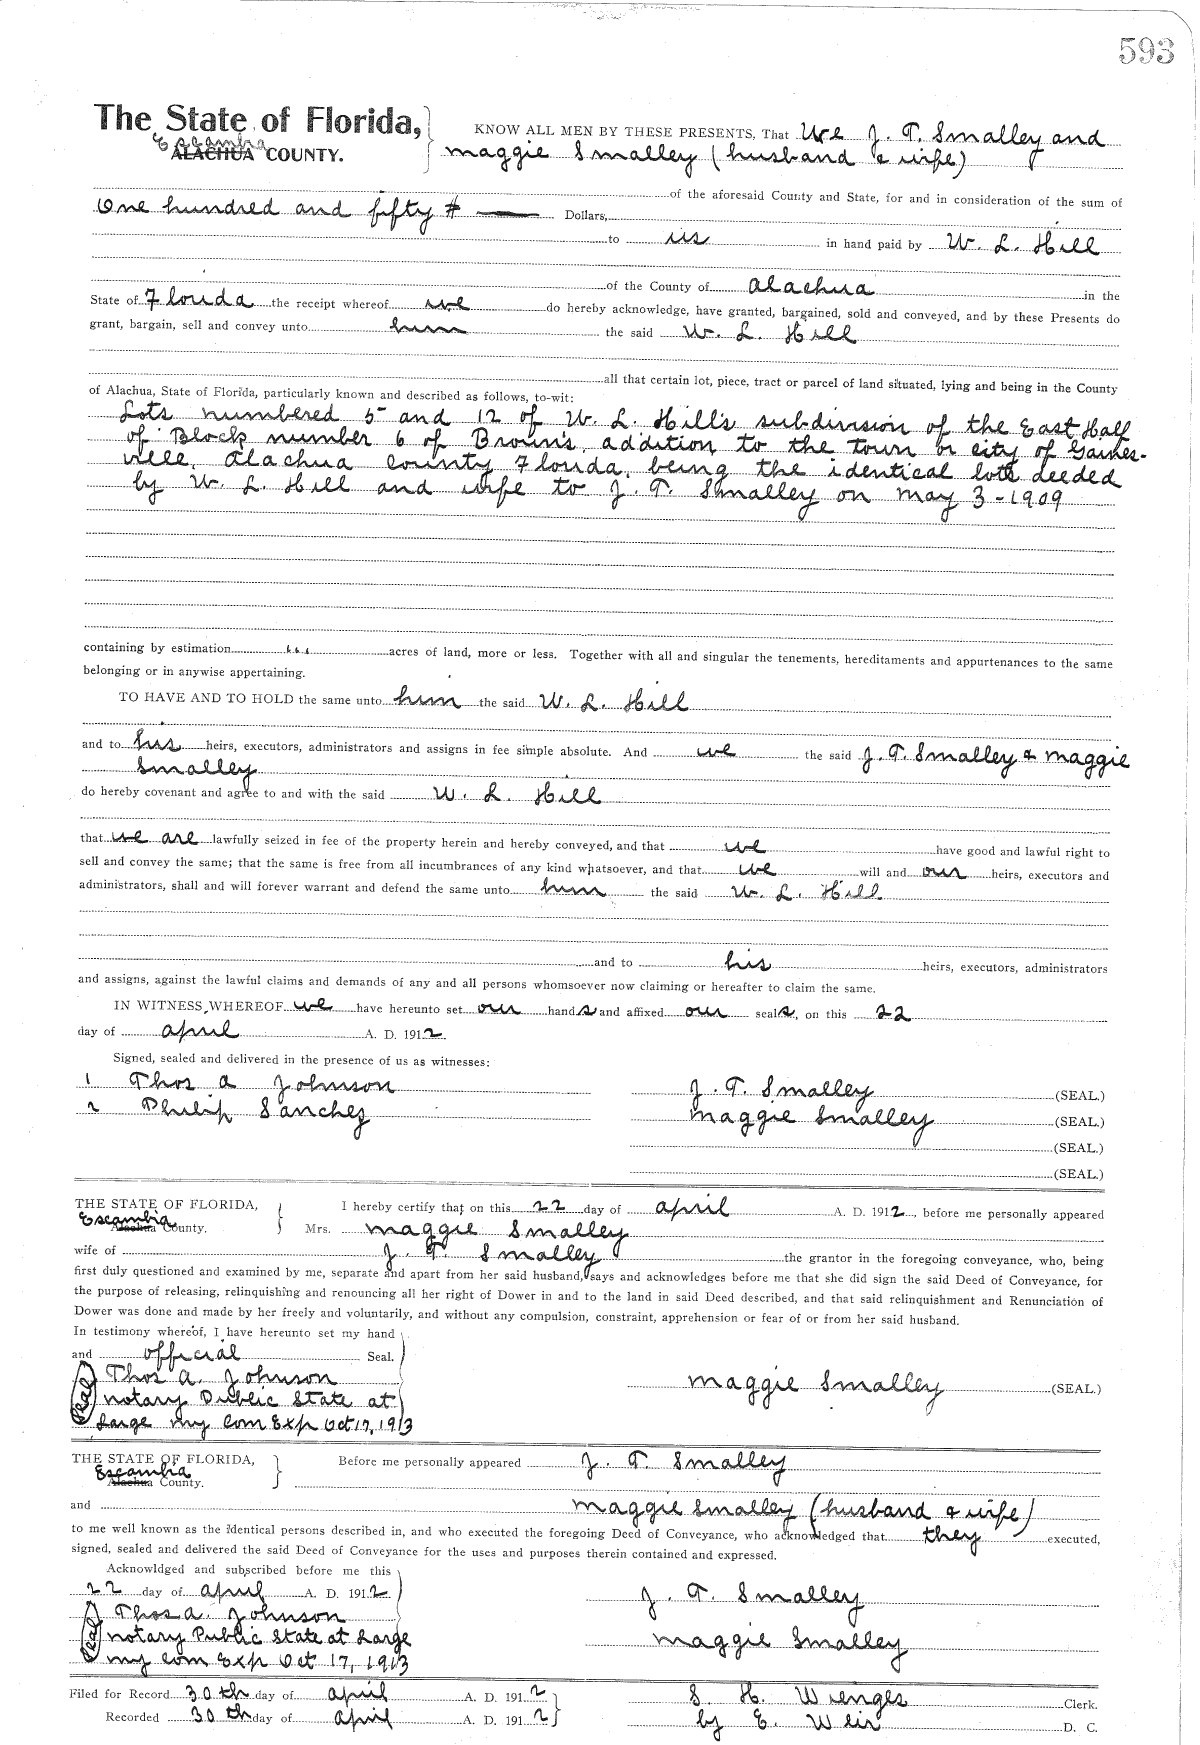 593
The State of Florida,
Escambia
ALACHUA COUNTY.
KNOW ALL MEN BY THESE PRESENTS, That We J. T. Smalley and
Maggie Smalley (husband & wife)
of the aforesaid County and State, for and in consideration of the sum of
One hundred and fifty # Dollars,
to us in hand paid by W. L. Hill
of the County of Alachua in the
State of Florida the receipt whereof we do hereby acknowledge, have granted, bargained, sold and conveyed, and by these Presents do
grant, bargain, sell and convey unto him the said W. L. Hill
all that certain lot, piece, tract or parcel of land situated, lying and being in the County
of Alachua, State of Florida, particularly known and described as follows, to-wit:
Lots numbered 5 and 12 of W. L. Hill's subdivision of the East Half
of Block number 6 of Brown's addition to the town or city of Gaines-
ville, Alachua County Florida, being the identical lots deeded
by W. L. Hill and wife to J. T. Smalley on May 3-1909
containing by estimation acres of land, more or less. Together with all and singular the tenements, hereditaments and appurtenances to the same
belonging or in anywise appertaining.
TO HAVE AND TO HOLD the same unto him the said W. L. Hill
and to his heirs, executors, administrators and assigns in fee simple absolute. And we the said J. T. Smalley & Maggie
Smalley
do hereby covenant and agree to and with the said W. L. Hill
that we are lawfully seized in fee of the property herein and hereby conveyed, and that we have good and lawful right to
sell and convey the same; that the same is free from all incumbrances of any kind whatsoever, and that we will and our heirs, executors and
administrators, shall and will forever warrant and defend the same unto him the said W. L. Hill
and to his heirs, executors, administrators
and assigns, against the lawful claims and demands of any and all persons whomsoever now claiming or hereafter to claim the same.
IN WITNESS WHEREOF we have hereunto set our hands and affixed our seals, on this 22
day of April A. D. 1912.
Signed, sealed and delivered in the presence of us as witnesses:
1 Thos A Johnson
2 Philip Sanchez
J. T. Smalley (SEAL.)
Maggie Smalley (SEAL.)
(SEAL.)
(SEAL.)
THE STATE OF FLORIDA,
Escambia
Alachua County.
I hereby certify that on this 22 day of April A. D. 1912, before me personally appeared
Mrs. Maggie Smalley
wife of J. T. Smalley the grantor in the foregoing conveyance, who, being
first duly questioned and examined by me, separate and apart from her said husband, says and acknowledges before me that she did sign the said Deed of Conveyance, for
the purpose of releasing, relinquishing and renouncing all her right of Dower in and to the land in said Deed described, and that said relinquishment and Renunciation of
Dower was done and made by her freely and voluntarily, and without any compulsion, constraint, apprehension or fear of or from her said husband.
In testimony whereof, I have hereunto set my hand
and official Seal.
Thos A. Johnson
Notary Public State at
Large My Com Exp Oct 17, 1913
Maggie Smalley (SEAL.)
THE STATE OF FLORIDA,
Escambia
Alachua County.
Before me personally appeared J. T. Smalley
and Maggie Smalley (husband & wife)
to me well known as the identical persons described in, and who executed the foregoing Deed of Conveyance, who acknowledged that they executed,
signed, sealed and delivered the said Deed of Conveyance for the uses and purposes therein contained and expressed.
Acknowldged and subscribed before me this
22 day of April A. D. 1912.
Thos A. Johnson
Notary Public State at Large
My Com Exp Oct 17, 1913
J. T. Smalley
Maggie Smalley
Filed for Record 30th day of April A. D. 1912
Recorded 30th day of April A. D. 1912
S. H. Wienges Clerk.
by E. Weir D. C.